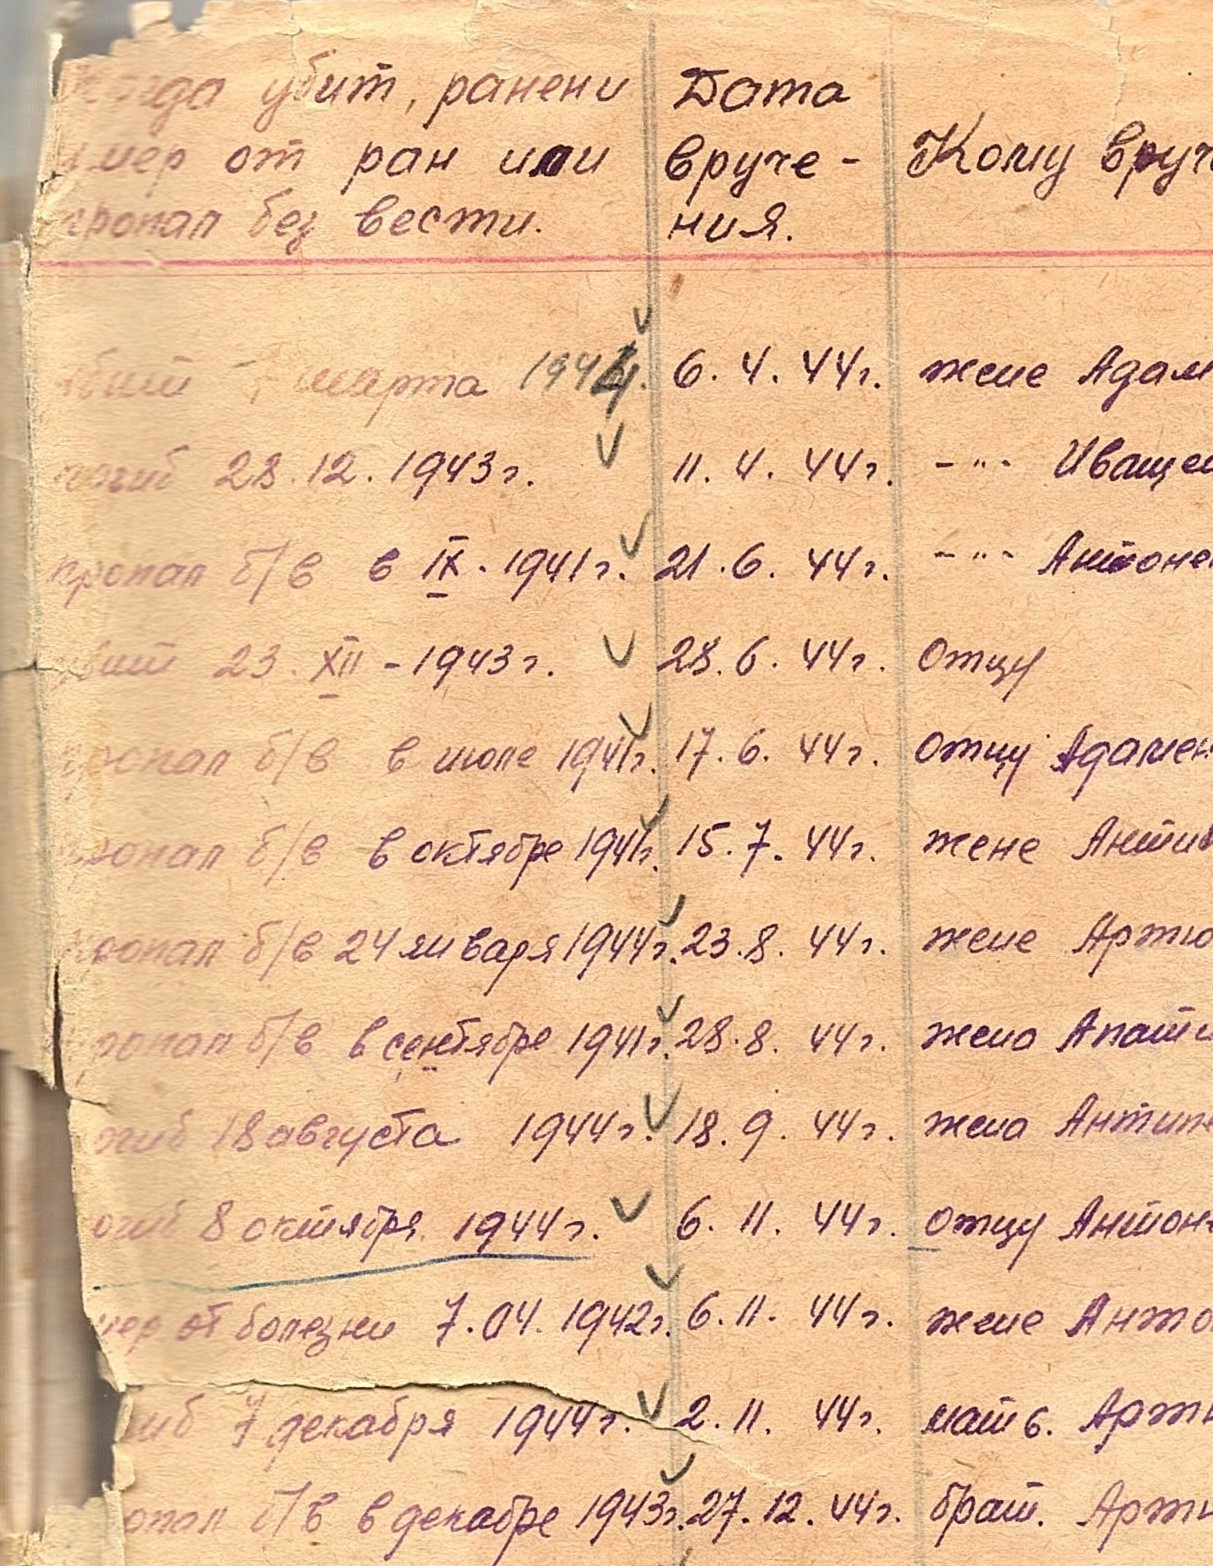 Когда убит, ранен и Дата
умер от ран или вруче- Кому вруч
пропал без вести. ния.
убит марта 1944. 6. 4. 44г. жене Адам
погиб 28.12.1943г. 11. 4. 44г. -"- Иващен
пропал б/в в IX. 1941г. 21.6. 44г. -"- Антоне
убит 23 XII - 1943г. 28.6. 44г. отцу
пропал б/в в июле 1941г. 17.6. 44г. отцу Адамен
пропал б/в в октябре 1941г. 15.7. 44г. жене Антив
пропал б/в 24 января 1944г. 23.8. 44г. жене Артю
пропал б/в в сентябре 1941г. 28.8. 44г. жена Апати
погиб 18 августа 1944г. 18.9. 44г. жена Антип
погиб 8 октября 1944г. 6. 11. 44г. отцу Антон
умер от болезни 7.04.1942г. 6.11. 44г. жене Анто
иб 7 декабря 1944г. 2.11. 44г. мать. Арт
ропал б/в в декабре 1943г. 27.12.44г. брат. Арт